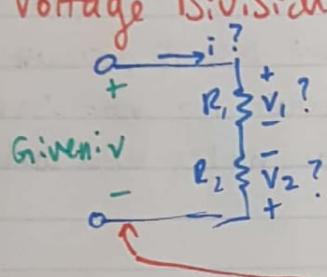 Voltage Division
i ?
+
+
R₁ V₁ ?
−
Given: v
−
R₂ V₂ ?
−
+